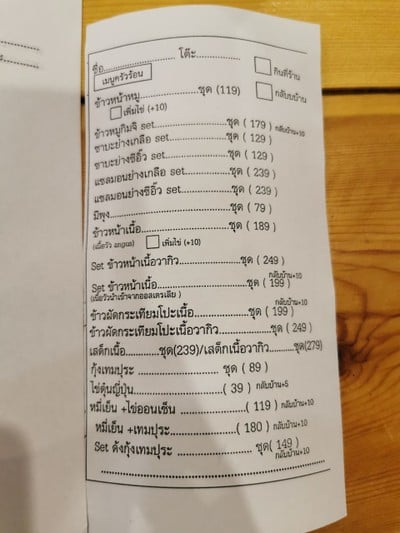 ชื่อ.......................... โต๊ะ.................. กินที่ร้าน
เมนูครัวร้อน
กลับบ้าน
ข้าวหน้าหมู......................ชุด (119)
เพิ่มไข่ (+10)
ข้าวหมูกิมจิ set......................ชุด ( 179 ) กลับบ้าน+10
ซาบะย่างเกลือ set...................ชุด ( 129 )
ซาบะย่างซีอิ๊ว set...................ชุด ( 129 )
แซลมอนย่างเกลือ set................ชุด ( 239 )
แซลมอนย่างซีอิ๊ว set................ชุด ( 239 )
มีพุง...............................ชุด ( 79 )
ข้าวหน้าเนื้อ........................ชุด ( 189 )
(เนื้อวัว angus) เพิ่มไข่ (+10)
Set ข้าวหน้าเนื้อวากิว...............ชุด ( 249 )
กลับบ้าน+10
Set ข้าวหน้าเนื้อ....................ชุด ( 199 )
(เนื้อวัวนำเข้าจากออสเตรเลีย ) กลับบ้าน+10
ข้าวผัดกระเทียมโปะเนื้อ.............ชุด ( 199 )
ข้าวผัดกระเทียมโปะเนื้อวากิว............ชุด ( 249 )
เสต็กเนื้อ..........ชุด(239)/เสต็กเนื้อวากิว..........ชุด(279)
กุ้งเทมปุระ ......................... ชุด ( 89 )
ไข่ตุ๋นญี่ปุ่น......................... ( 39 ) กลับบ้าน+5
หมี่เย็น +ไข่ออนเซ็น ..................(119 ) กลับบ้าน+10
หมี่เย็น +เทมปุระ......................(180 ) กลับบ้าน+10
Set ด้งกุ้งเทมปุระ ..................... ชุด( 149 )
กลับบ้าน+10